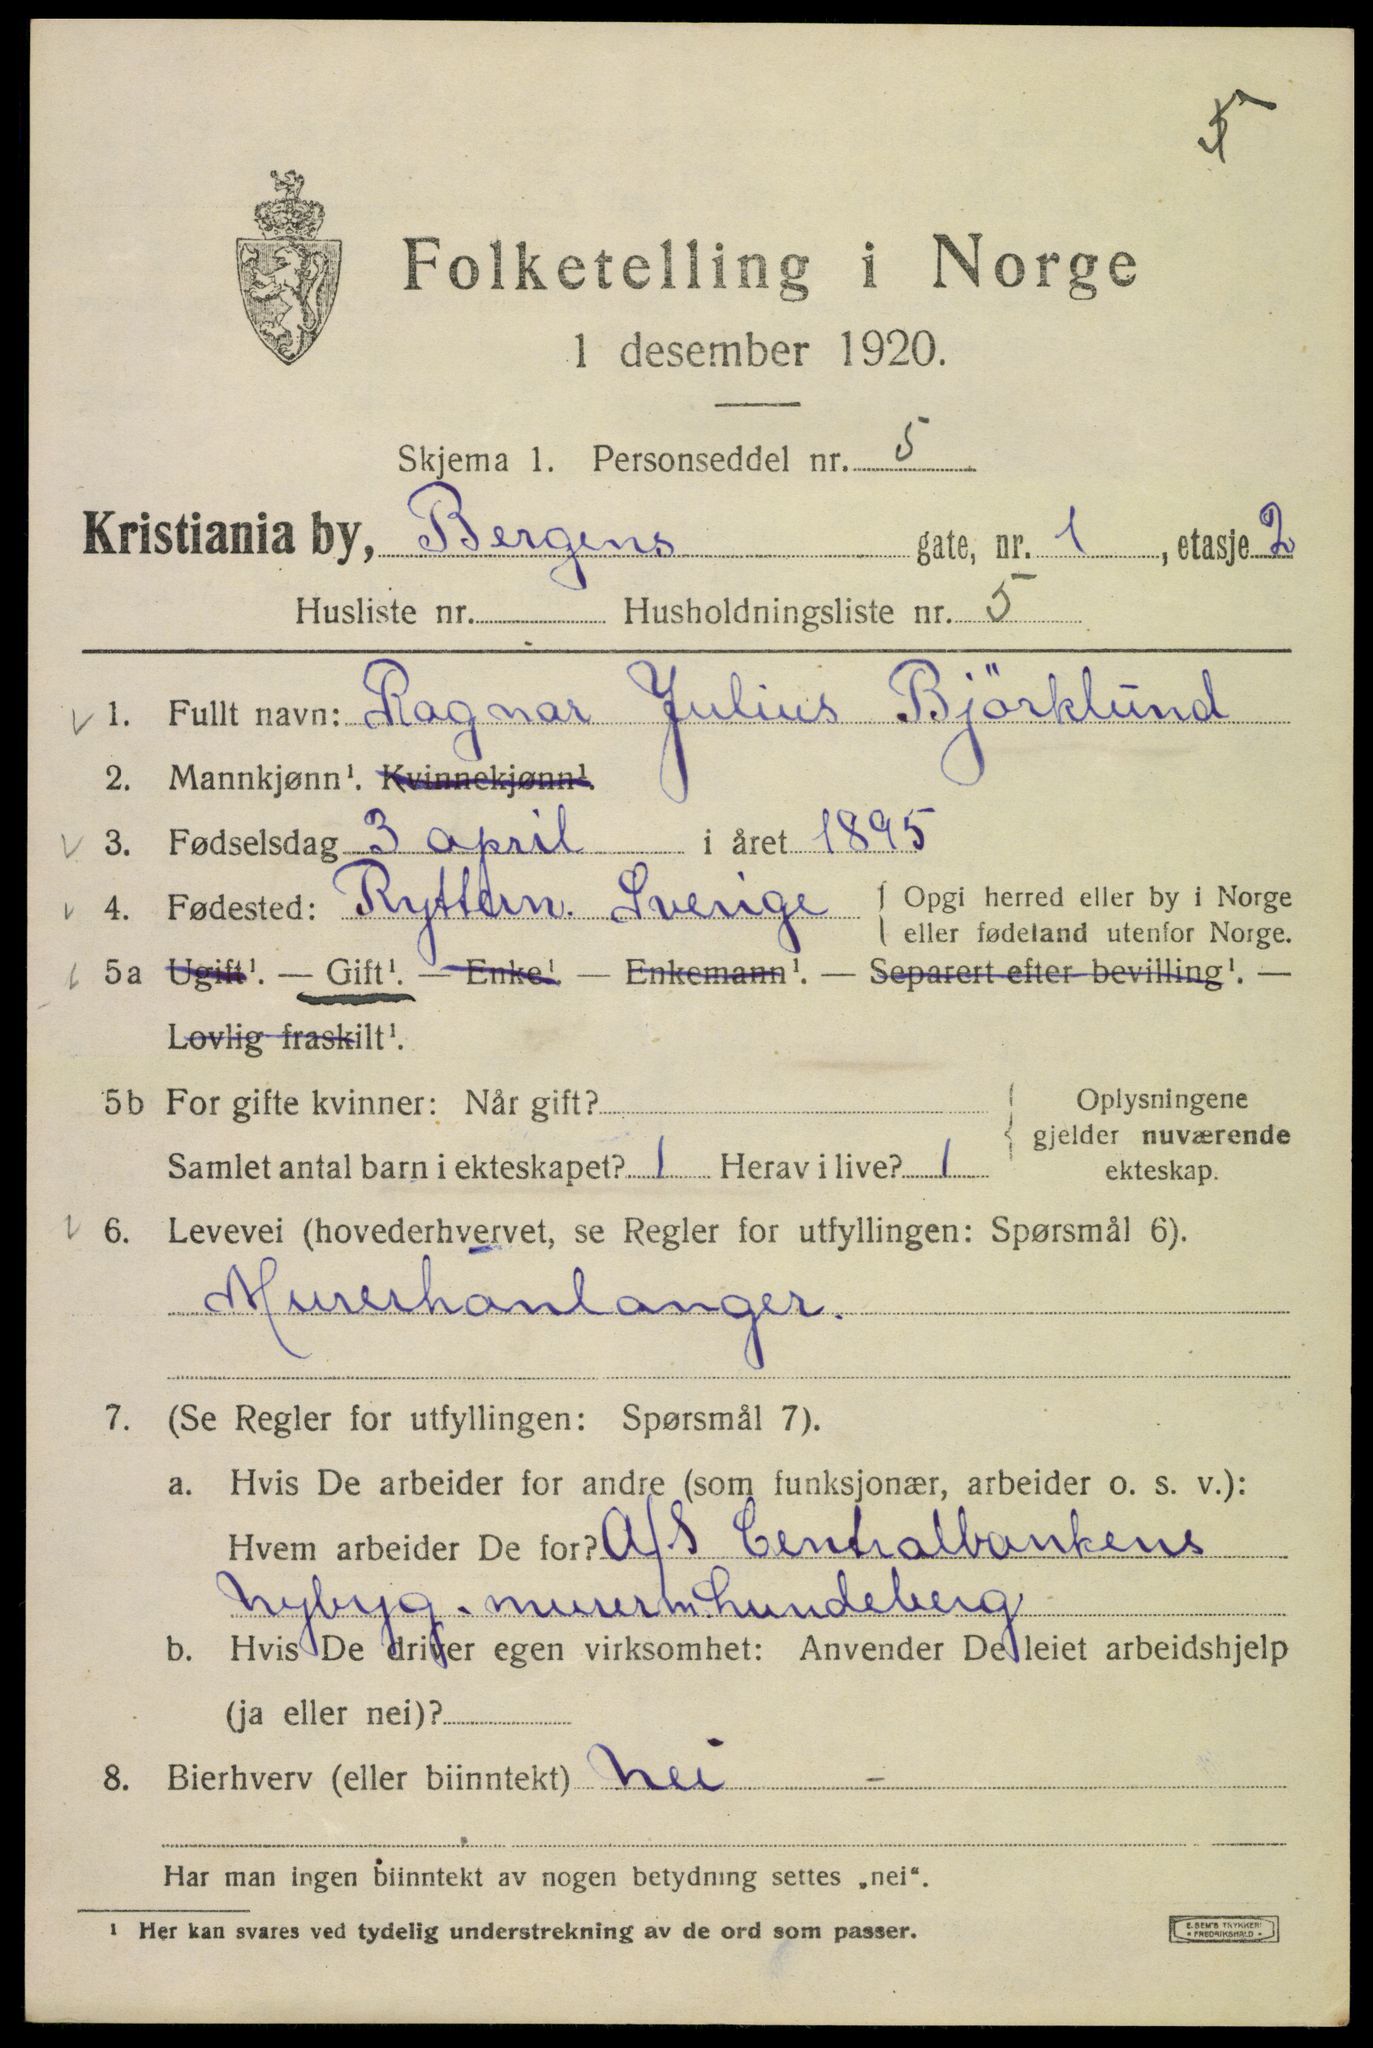 5
Folketelling i Norge
1 desember 1920.
Skjema 1. Personseddel nr. 5
Kristiania by, Bergens gate, nr. 1, etasje 2
Husliste nr. Husholdningsliste nr. 5
1. Fullt navn: Ragnar Julius Björklund
2. Mannkjønn¹. Kvinnekjønn¹.
3. Fødselsdag 3 april i året 1895
4. Fødested: Ryttern. Sverige { Opgi herred eller by i Norge
eller fødeland utenfor Norge.
5a Ugift¹. — Gift¹. — Enke¹. — Enkemann¹. — Separert efter bevilling¹. —
Lovlig fraskilt¹.
5b For gifte kvinner: Når gift? { Oplysningene
gjelder nuværende
Samlet antal barn i ekteskapet? 1 Herav i live? 1 ekteskap.
6. Levevei (hovederhvervet, se Regler for utfyllingen: Spørsmål 6).
Murerhanlanger.
7. (Se Regler for utfyllingen: Spørsmål 7).
a. Hvis De arbeider for andre (som funksjonær, arbeider o. s. v.):
Hvem arbeider De for? A/S Centralbankens
Nybyg. murerm. Lundeberg
b. Hvis De driver egen virksomhet: Anvender De leiet arbeidshjelp
(ja eller nei)?
8. Bierhverv (eller biinntekt) Nei –
Har man ingen biinntekt av nogen betydning settes „nei“.
¹ Her kan svares ved tydelig understrekning av de ord som passer.
E. SEM'S TRYKKERI
• FREDRIKSHALD •